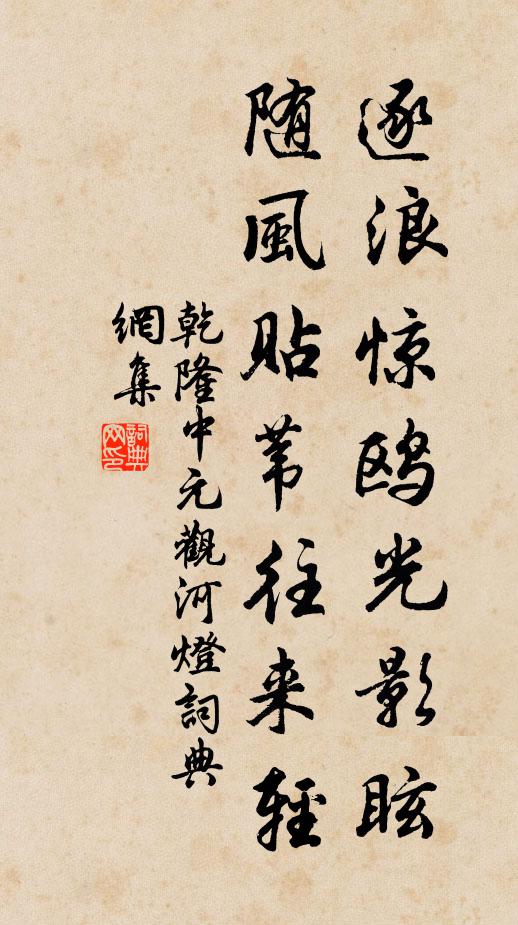 逐浪惊鸥光影眩
随風貼苇往来輕
乾隆中元觀河燈詞典
網集
詞典
网印